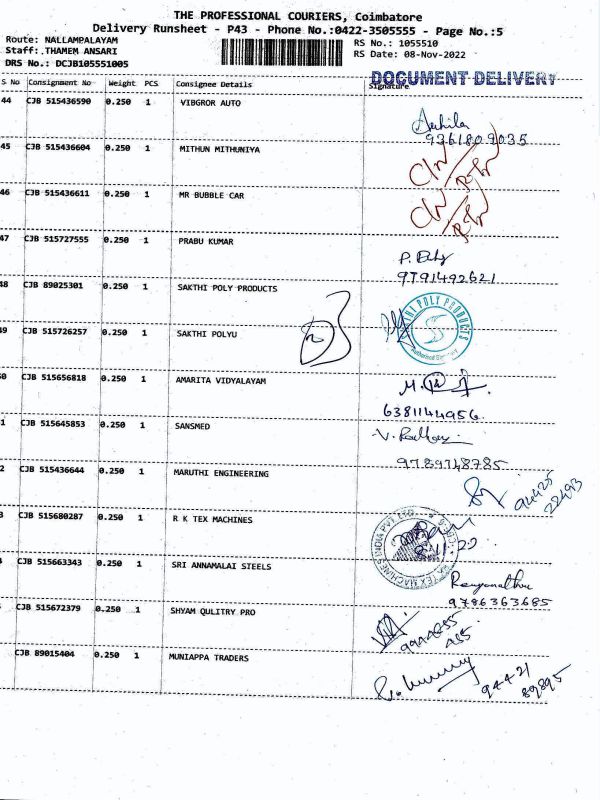 THE PROFESSIONAL COURIERS, Coimbatore
Delivery Runsheet - P43 - Phone No.:0422-3505555 - Page No.:5
Route: NALLAMPALAYAM
RS No.: 1055510
Staff: THAMEM ANSARI
RS Date: 08-Nov-2022
DRS No.: DCJB105551005
DOCUMENT DELIVERY
S No Consignment No Weight PCS Consignee Details Signature
44 CJB 515436590 0.250 1 VIBGROR AUTO
9361809035
45 CJB 515436604 0.250 1 MITHUN MITHUNIYA
46 CJB 515436611 0.250 1 MR BUBBLE CAR
47 CJB 515727555 0.250 1 PRABU KUMAR
9791492621
48 CJB 89025301 0.250 1 SAKTHI POLY PRODUCTS
THI POLY PRODUCTS
49 CJB 515726257 0.250 1 SAKTHI POLYU
0 CJB 515656818 0.250 1 AMARITA VIDYALAYAM
6381144956
1 CJB 515645853 0.250 1 SANSMED
9789748785
2 CJB 515436644 0.250 1 MARUTHI ENGINEERING
94425
22493
3 CJB 515680287 0.250 1 R K TEX MACHINES
TEX MACHINES INDIA PVT LTD
4 CJB 515663343 0.250 1 SRI ANNAMALAI STEELS
9786363685
CJB 515672379 0.250 1 SHYAM QULITRY PRO
CJB 89015404 0.250 1 MUNIAPPA TRADERS
94421
89895